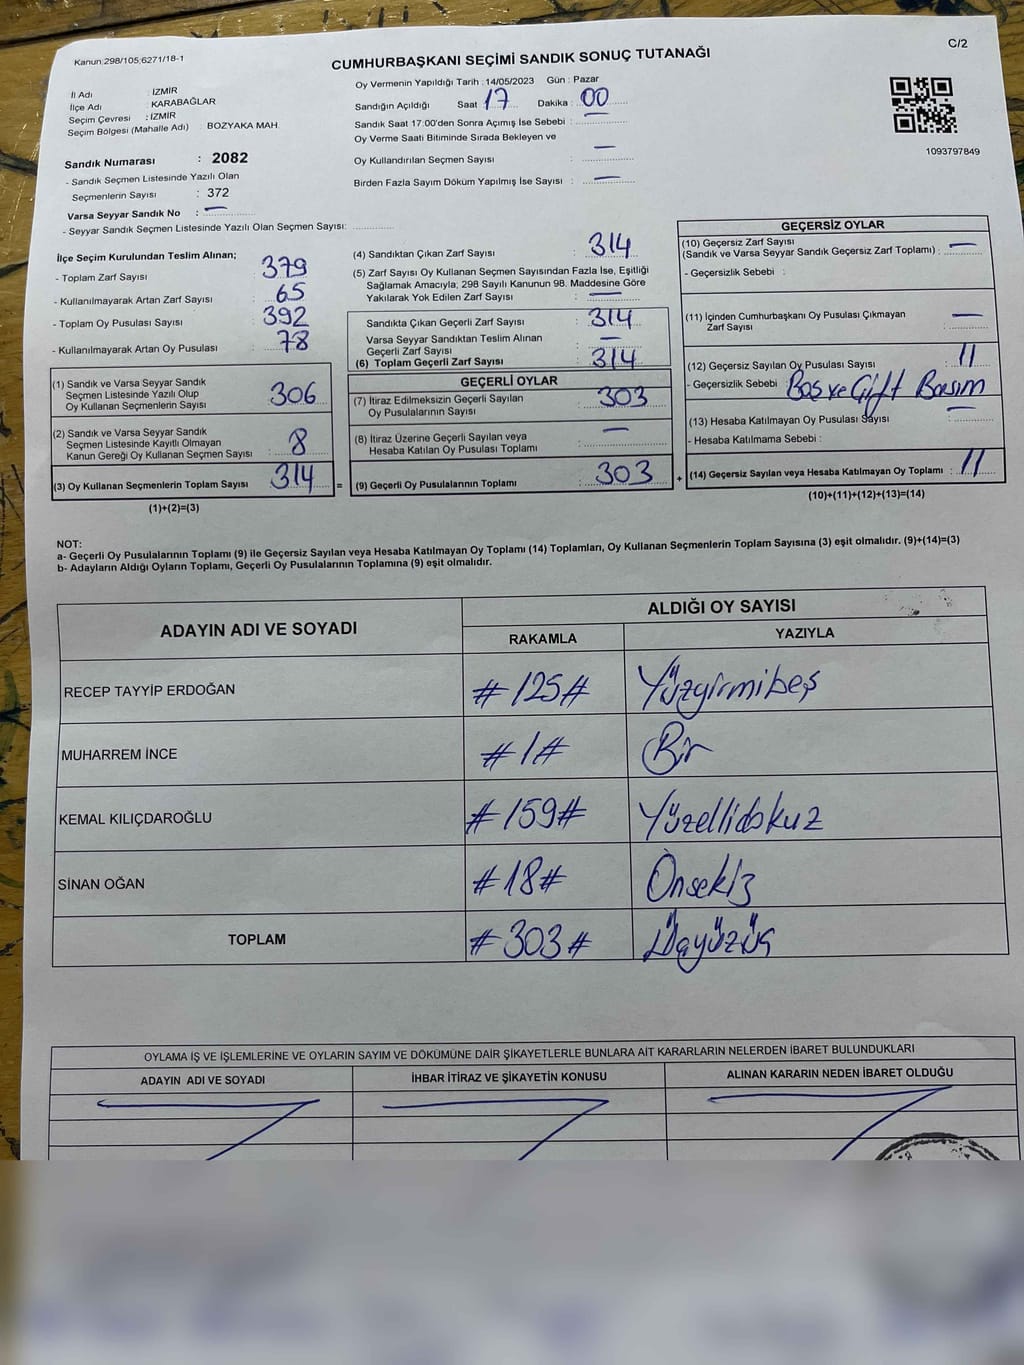 Kanun:298/105,6271/18-1
C/2
CUMHURBAŞKANI SEÇİMİ SANDIK SONUÇ TUTANAĞI
İl Adı : İZMİR
İlçe Adı : KARABAĞLAR
Seçim Çevresi : İZMİR
Seçim Bölgesi (Mahalle Adı) : BOZYAKA MAH.
Sandık Numarası : 2082
- Sandık Seçmen Listesinde Yazılı Olan
Seçmenlerin Sayısı : 372
Varsa Seyyar Sandık No : —
- Seyyar Sandık Seçmen Listesinde Yazılı Olan Seçmen Sayısı:
Oy Vermenin Yapıldığı Tarih : 14/05/2023 Gün : Pazar
Sandığın Açıldığı Saat 17 Dakika : 00
Sandık Saat 17:00'den Sonra Açımış İse Sebebi :
Oy Verme Saati Bitiminde Sırada Bekleyen ve
Oy Kullandırılan Seçmen Sayısı : —
Birden Fazla Sayım Döküm Yapılmış İse Sayısı : —
1093797849
İlçe Seçim Kurulundan Teslim Alınan;
- Toplam Zarf Sayısı : 379
- Kullanılmayarak Artan Zarf Sayısı : 65
- Toplam Oy Pusulası Sayısı : 392
- Kullanılmayarak Artan Oy Pusulası : 78
(1) Sandık ve Varsa Seyyar Sandık
Seçmen Listesinde Yazılı Olup
Oy Kullanan Seçmenlerin Sayısı : 306
(2) Sandık ve Varsa Seyyar Sandık
Seçmen Listesinde Kayıtlı Olmayan
Kanun Gereği Oy Kullanan Seçmen Sayısı : 8
(3) Oy Kullanan Seçmenlerin Toplam Sayısı : 314 =
(1)+(2)=(3)
(4) Sandıktan Çıkan Zarf Sayısı : 314
(5) Zarf Sayısı Oy Kullanan Seçmen Sayısından Fazla İse, Eşitliği
Sağlamak Amacıyla; 298 Sayılı Kanunun 98. Maddesine Göre
Yakılarak Yok Edilen Zarf Sayısı : —
Sandıkta Çıkan Geçerli Zarf Sayısı : 314
Varsa Seyyar Sandıktan Teslim Alınan
Geçerli Zarf Sayısı : —
(6) Toplam Geçerli Zarf Sayısı : 314
GEÇERLİ OYLAR
(7) İtiraz Edilmeksizin Geçerli Sayılan
Oy Pusulalarının Sayısı : 303
(8) İtiraz Üzerine Geçerli Sayılan veya
Hesaba Katılan Oy Pusulası Toplamı : —
(9) Geçerli Oy Pusulalarının Toplamı : 303 +
GEÇERSİZ OYLAR
(10) Geçersiz Zarf Sayısı
(Sandık ve Varsa Seyyar Sandık Geçersiz Zarf Toplamı) : —
- Geçersizlik Sebebi :
(11) İçinden Cumhurbaşkanı Oy Pusulası Çıkmayan
Zarf Sayısı : —
(12) Geçersiz Sayılan Oy Pusulası Sayısı : 11
- Geçersizlik Sebebi : Boş ve Çift Basım
(13) Hesaba Katılmayan Oy Pusulası Sayısı : —
- Hesaba Katılmama Sebebi :
(14) Geçersiz Sayılan veya Hesaba Katılmayan Oy Toplamı : 11
(10)+(11)+(12)+(13)=(14)
NOT:
a- Geçerli Oy Pusulalarının Toplamı (9) ile Geçersiz Sayılan veya Hesaba Katılmayan Oy Toplamı (14) Toplamları, Oy Kullanan Seçmenlerin Toplam Sayısına (3) eşit olmalıdır. (9)+(14)=(3)
b- Adayların Aldığı Oyların Toplamı, Geçerli Oy Pusulalarının Toplamına (9) eşit olmalıdır.
ADAYIN ADI VE SOYADI
ALDIĞI OY SAYISI
RAKAMLA YAZIYLA
RECEP TAYYİP ERDOĞAN #125# Yüzyirmibeş
MUHARREM İNCE #1# Bir
KEMAL KILIÇDAROĞLU #159# Yüzellidokuz
SİNAN OĞAN #18# Onsekiz
TOPLAM #303# Üçyüzüç
OYLAMA İŞ VE İŞLEMLERİNE VE OYLARIN SAYIM VE DÖKÜMÜNE DAİR ŞİKAYETLERLE BUNLARA AİT KARARLARIN NELERDEN İBARET BULUNDUKLARI
ADAYIN ADI VE SOYADI İHBAR İTİRAZ VE ŞİKAYETİN KONUSU ALINAN KARARIN NEDEN İBARET OLDUĞU